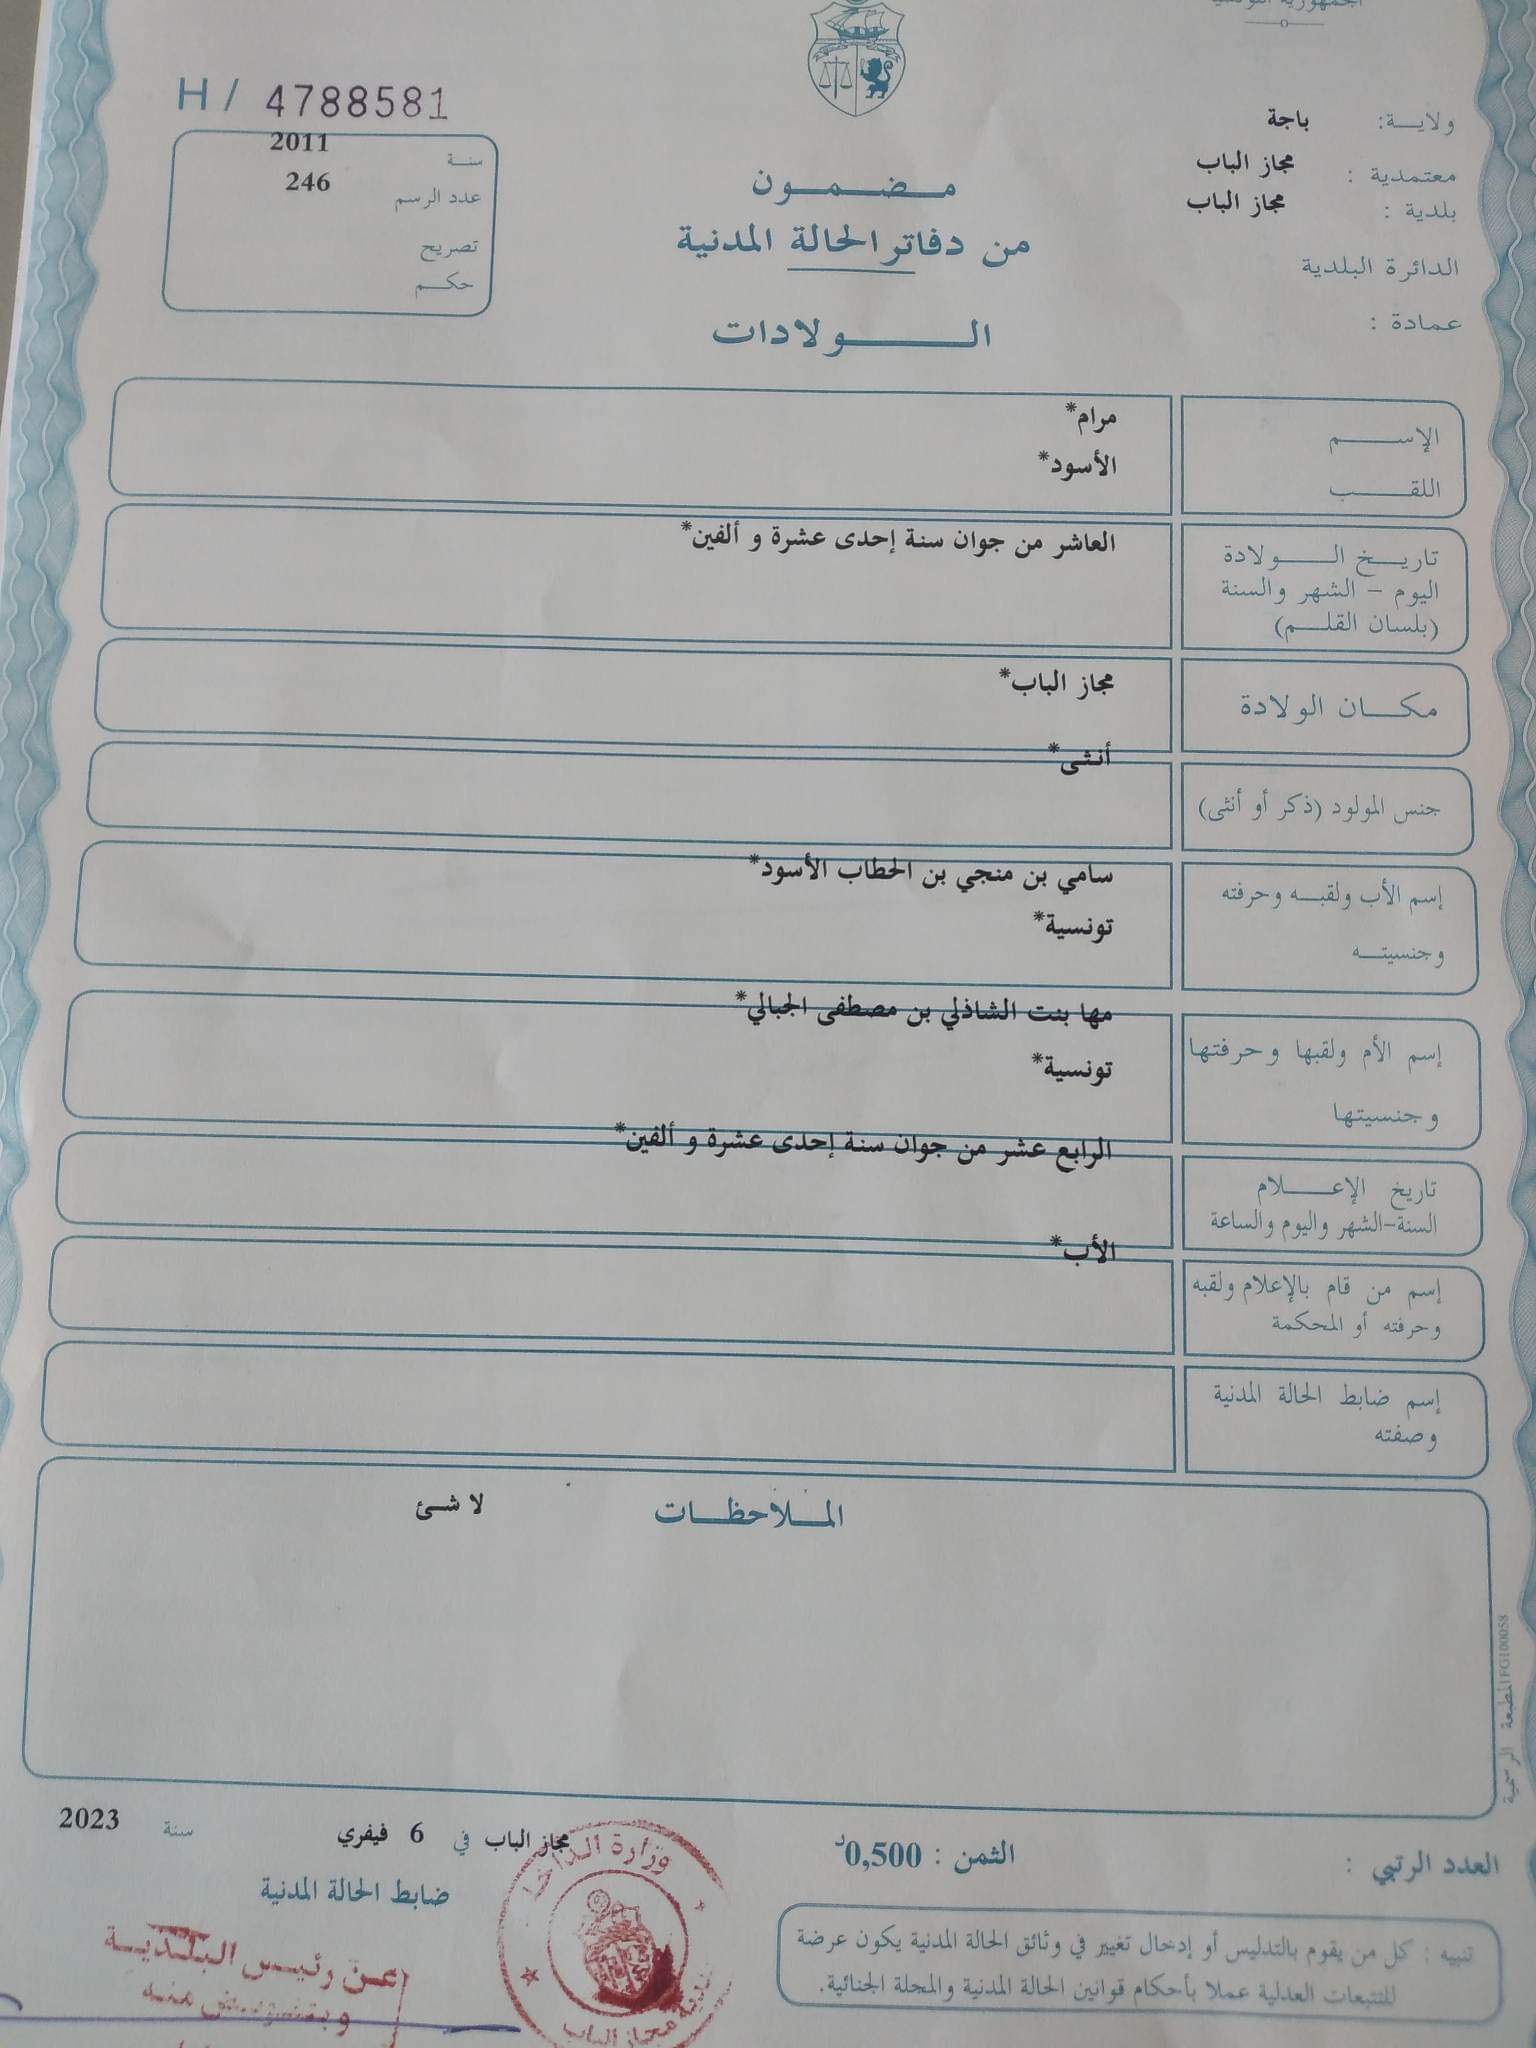 الجمهورية التونسية
H / 4788581
ولايـــة: باجة
معتمدية : مجاز الباب
بلدية : مجاز الباب
الدائرة البلدية
عمادة :
سنـة 2011
عدد الرسم 246
تصريح
حكـم
مـضـمـون
من دفاتر الحالة المدنية
الـــولادات
الإســـم مرام*
اللقـــب الأسود*
تاريـــخ الـــولادة العاشر من جوان سنة إحدى عشرة و ألفين*
اليوم - الشهر والسنة
(بلسان القلـــم)
مكـــان الولادة مجاز الباب*
جنس المولود (ذكر أو أنثى) أنثى*
إسم الأب ولقبـــه وحرفته سامي بن منجي بن الحطاب الأسود*
وجنسيتـــه تونسية*
إسم الأم ولقبها وحرفتها مها بنت الشاذلي بن مصطفى الجبالي*
وجنسيتها تونسية*
تاريخ الإعـــلام الرابع عشر من جوان سنة إحدى عشرة و ألفين*
السنة-الشهر واليوم والساعة
إسم من قام بالإعلام ولقبه الأب*
وحرفته أو المحكمة
إسم ضابط الحالة المدنية
وصفته
المـــلاحظـــات لا شئ
المطبعة الرسمية FG100058
العدد الرتبي : الثمن : 0,500د
مجاز الباب في 6 فيفري سنة 2023
ضابط الحالة المدنية
تنبيه : كل من يقوم بالتدليس أو إدخال تغيير في وثائق الحالة المدنية يكون عرضة
للتتبعات العدلية عملا بأحكام قوانين الحالة المدنية والمجلة الجنائية.
وزارة الداخل
مجاز الباب
عـن رئيـس البـلـديـة
وبتفويض منه